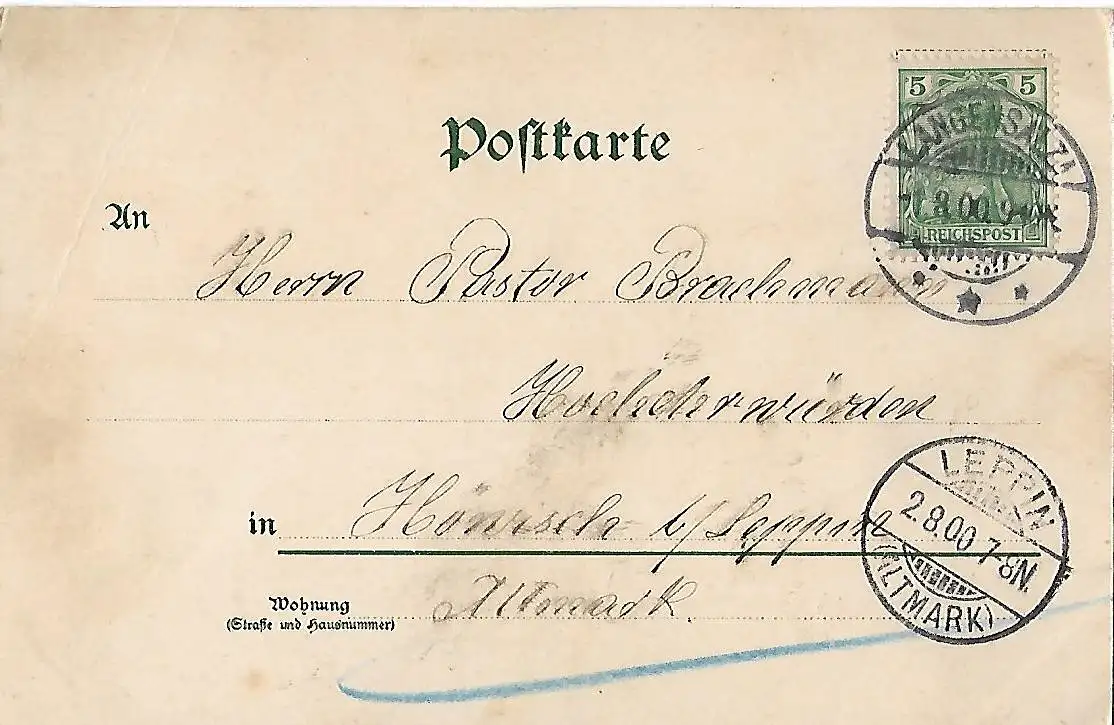 Postkarte
5 5
REICHSPOST
LANGENSALZA
8.00 9-
An
Herrn Pastor Brachmann
Hochehrwürden
in b/Leppin
Altmark
Wohnung
(Straße und Hausnummer)
LEPPIN
2.8.00 7-8N.
(ALTMARK)